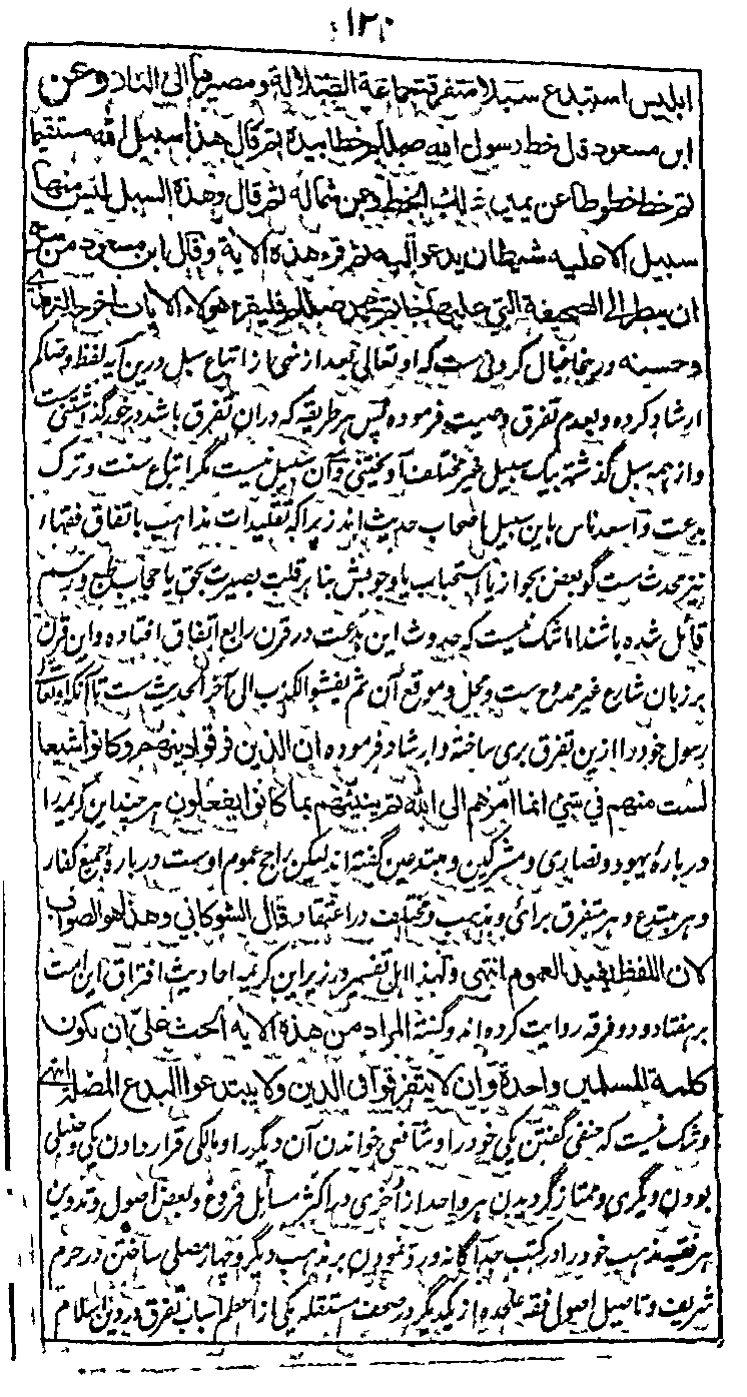 ۱۲۰
ابلیس استبدع سبلا متفرقة جماعة الضلالة ومصیرها الی النار وعن
ابن مسعود قال خط رسول الله صللم خطا بیده ثم قال هذا سبیل الله مستقیما
ثم خط خطوطا عن یمین ذلك الخط وعن شماله ثم قال وهذه السبل لیس منها
سبیل الا علیه شیطان یدعو الیه ثم قرء هذه الایة وقال ابن مسعود من سره
ان ینظر الی الصحیفة التی علیها خاتم محمد صللم فلیقرء هؤلاء الایات اخرجه الترمذی
وحسنه ودرینجا خیال کردنی ست که او تعالی بعد از نهی از اتباع سبل درین آیه لفظ وصاکم
ارشاد کرده وبعدم تفرق وصیت فرموده پس هر طریقه که دران تفرق باشد در خور گذاشتنی ست
واز همه سبل گذشته بیک سبیل غیر مختلف آویختنی وآن سبیل نیست مگر اتباع سنت وترک
بدعت واسعد ناس باین سبیل اصحاب حدیث اند زیرا که تقلیدات مذاهب باتفاق فقهاء
نیز محدث ست گو بعض بجواز یا استحباب یا وجوبش بنا بر قلت بصیرت بحق یا حجاب طبع ورسم
قائل شده باشند اما شک نیست که حدوث این بدعت در قرن رابع اتفاق افتاده واین قرن
بر زبان شارع غیر ممدوح ست ومحل وموقع آن ثم یفشو الکذب الی آخر الحدیث ست تا آنکه او تعالی
رسول خود را ازین تفرق بری ساخته وارشاد فرموده ان الذین فرقوا دینهم وکانوا شیعا
لست منهم فی شیء انما امرهم الی الله ثم ینبئهم بما کانوا یفعلون هر چند این کریمه را
دربارۀ یهود ونصاری ومشرکین ومبتدعین گفته اند لیکن راجح عموم اوست دربارۀ جمیع کفار
وهر مبتدع وهر متفرق برای ومذهب ومختلف در اعتقاد قال الشوکانی وهذا هو الصواب
لان اللفظ یفید العموم انتهی ولهذا اهل تفسیر در زیر این کریمه احادیث افتراق این امت
بر هفتاد ودو فرقه روایت کرده اند وگفته المراد من هذه الایه الحث علی ان یکون
کلمة المسلمین واحدة وان لا یتفرقوا فی الدین ولا یبتدعوا البدع المضلة انتهی
وشک نیست که حنفی گفتن یکی خود را وشافعی خواندن آن دیگر را ومالکی قرار دادن یکی وحنبلی
بودن دیگری وممتاز گردیدن هر واحد از اخری در اکثر مسائل فروع وبعض اصول وتدوین
هر فقیه مذهب خود را در کتب جداگانه ورد نمودن بر مذهب دیگر وچهار مصلی ساختن در حرم
شریف وتاصیل اصول فقه علیحده از یکدیگر در صحف مستقله یکی از اعظم اسباب تفرق در دین اسلام